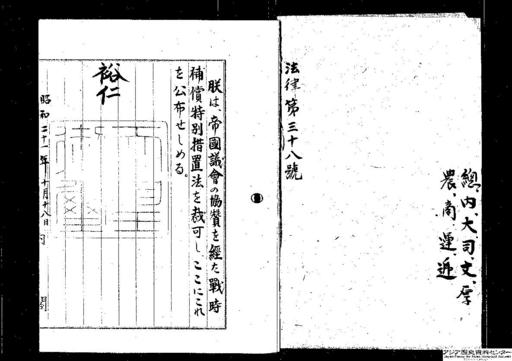 總、内、大、司、文、厚、
農、商、運、逓
法律第三十八號
朕は、帝國議會の協賛を經た戰時
補償特別措置法を裁可し、ここにこれ
を公布せしめる。
裕仁
昭和二十一年十月十八日
アジア歴史資料センター